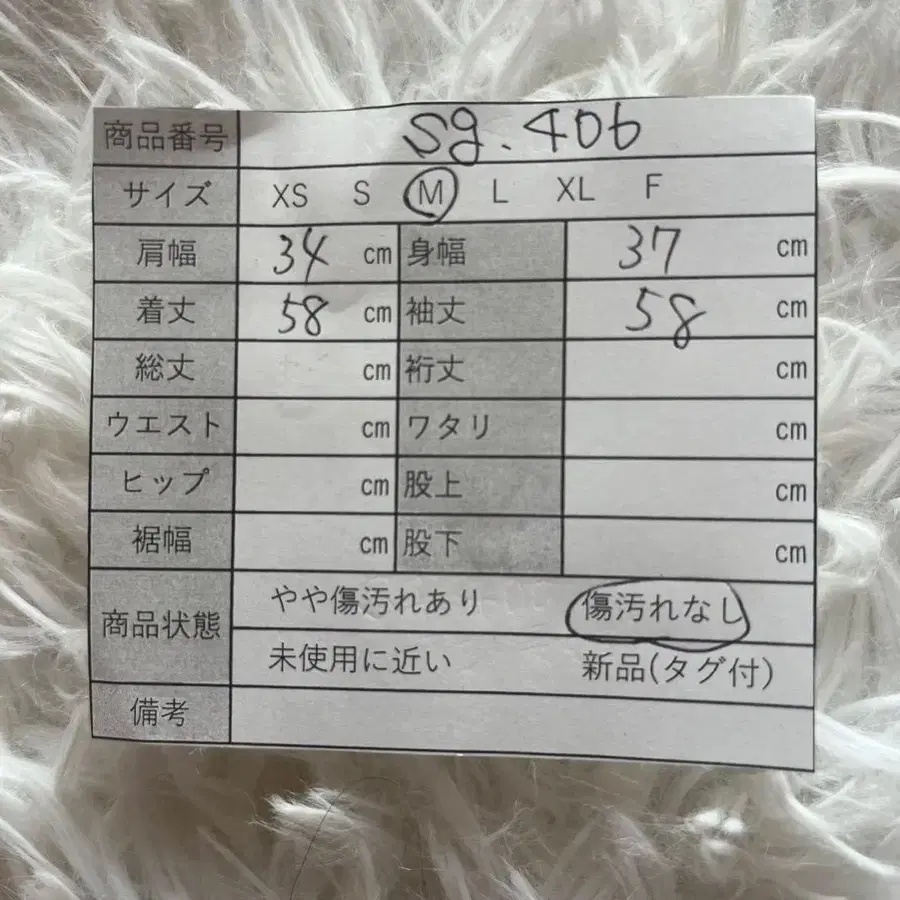 商品番号 sg.406
サイズ XS S M L XL F
肩幅 34 cm 身幅 37 cm
着丈 58 cm 袖丈 58 cm
総丈 cm 裄丈 cm
ウエスト cm ワタリ cm
ヒップ cm 股上 cm
裾幅 cm 股下 cm
商品状態 やや傷汚れあり 傷汚れなし
未使用に近い 新品(タグ付)
備考